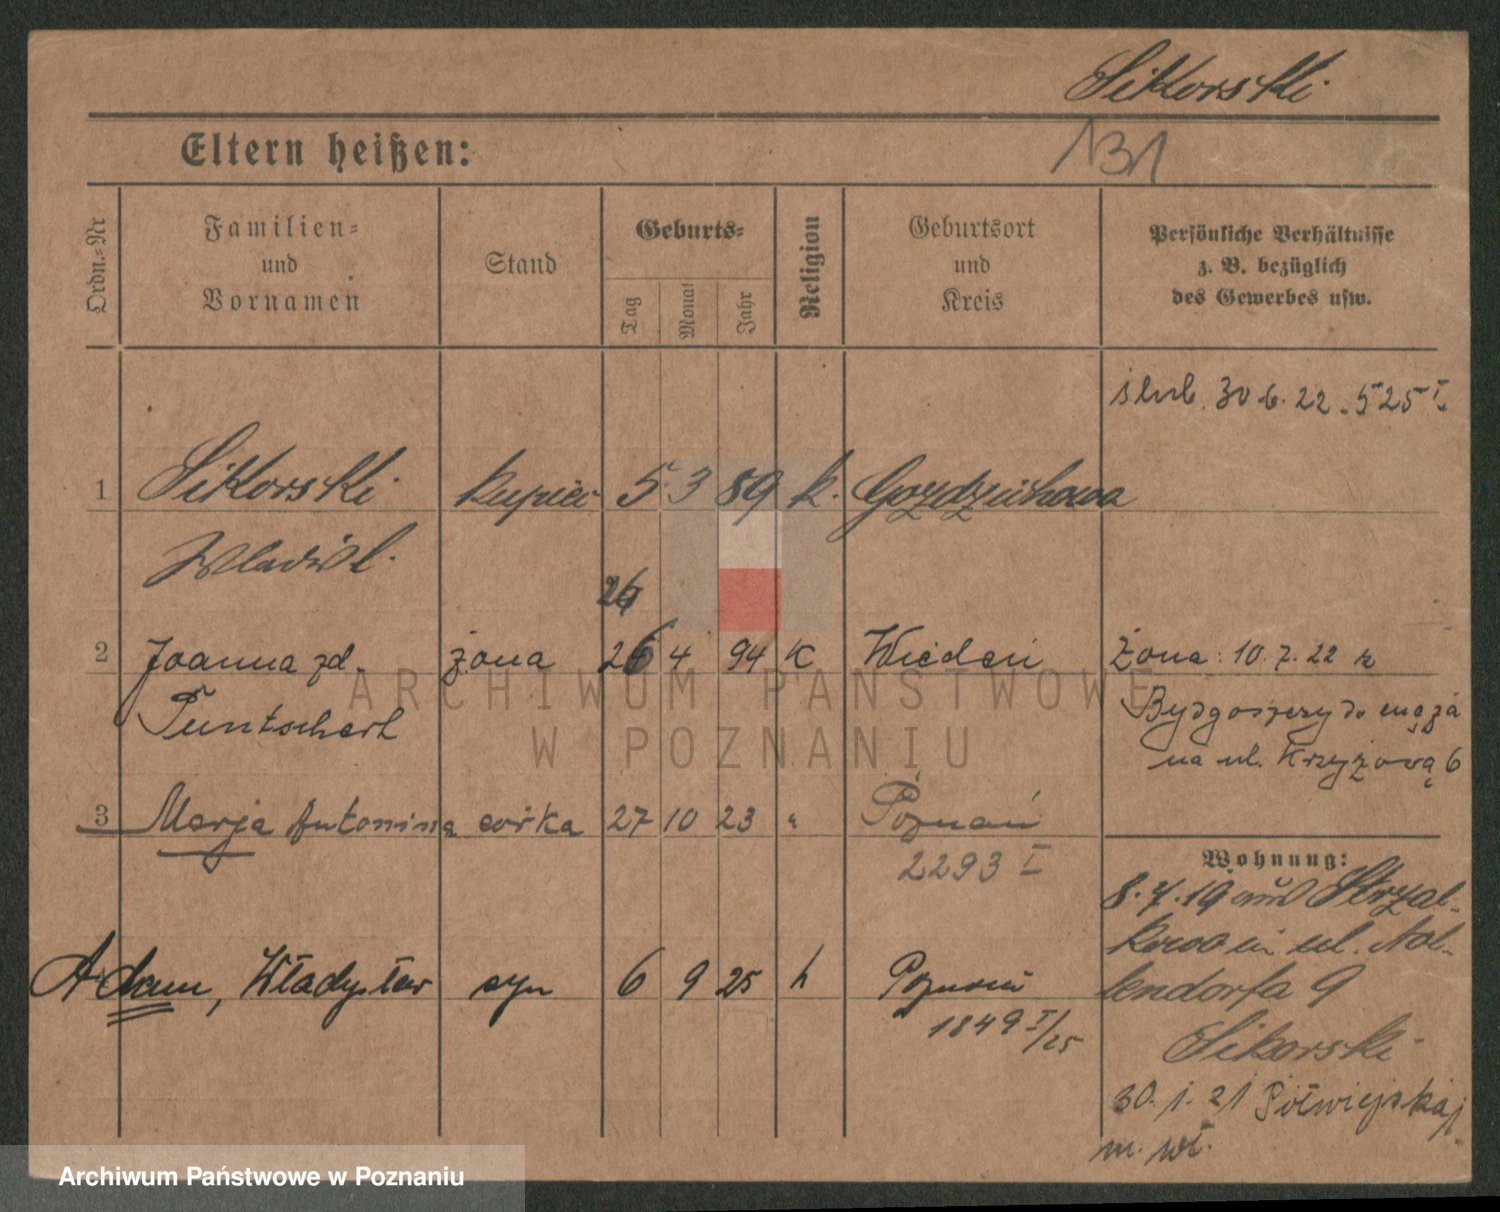 Sikorski
131
Eltern heißen:
Ordn.-Nr
Familien-
und
Vornamen
Stand
Geburts-
Tag
Monat
Jahr
Religion
Geburtsort
und
Kreis
Persönliche Verhältnisse
z. B. bezüglich
des Gewerbes usw.
ślub. 30.6.22 - 525 I
1 Sikorski kupiec 5 3 89 k. Gozdzichowa
Wladisl.
26
2 Joanna zd. żona 26 4 94 K Wiedeń
Żona: 10.7.22 z
Puntschert
Bydgoszczy do męża
na ul. Krzyżową 6
3 Marja Antonina córka 27 10 23 " Poznań
2293 I
Wohnung:
8.7.19 aus Strzal-
kowo in ul. Nol-
lendorfa 9
Adam, Władysław syn 6 9 25 k Poznań
1849 I/25
Sikorski
30.1.21 Półwiejska
m. wł.
ARCHIWUM PAŃSTWOWE
W POZNANIU
Archiwum Państwowe w Poznaniu